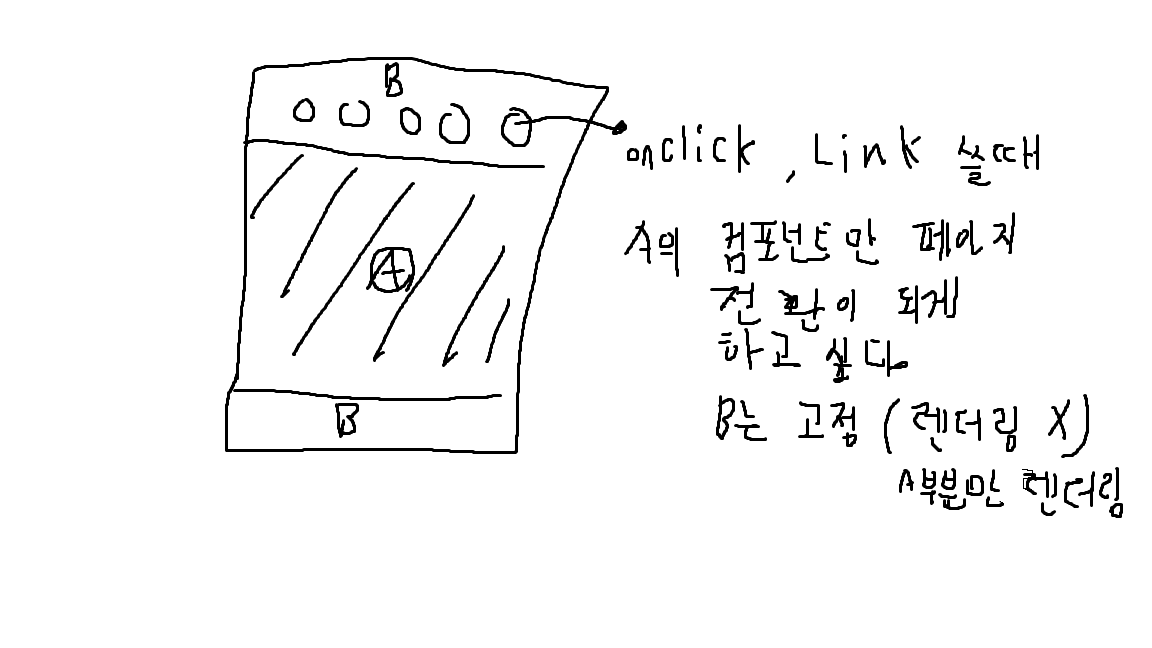 B
A
B
onclick, Link 쓸때
A의 컴포넌트만 페이지
전환이 되게
하고 싶다.
B는 고정 (렌더링 X)
A부분만 렌더링